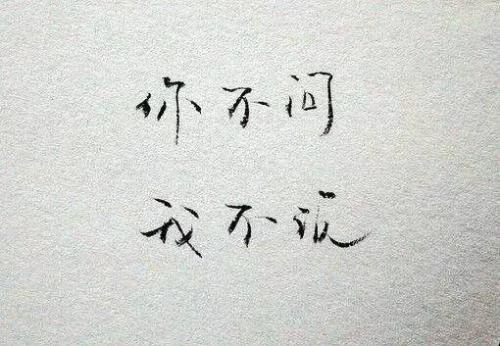 你不问
我不说